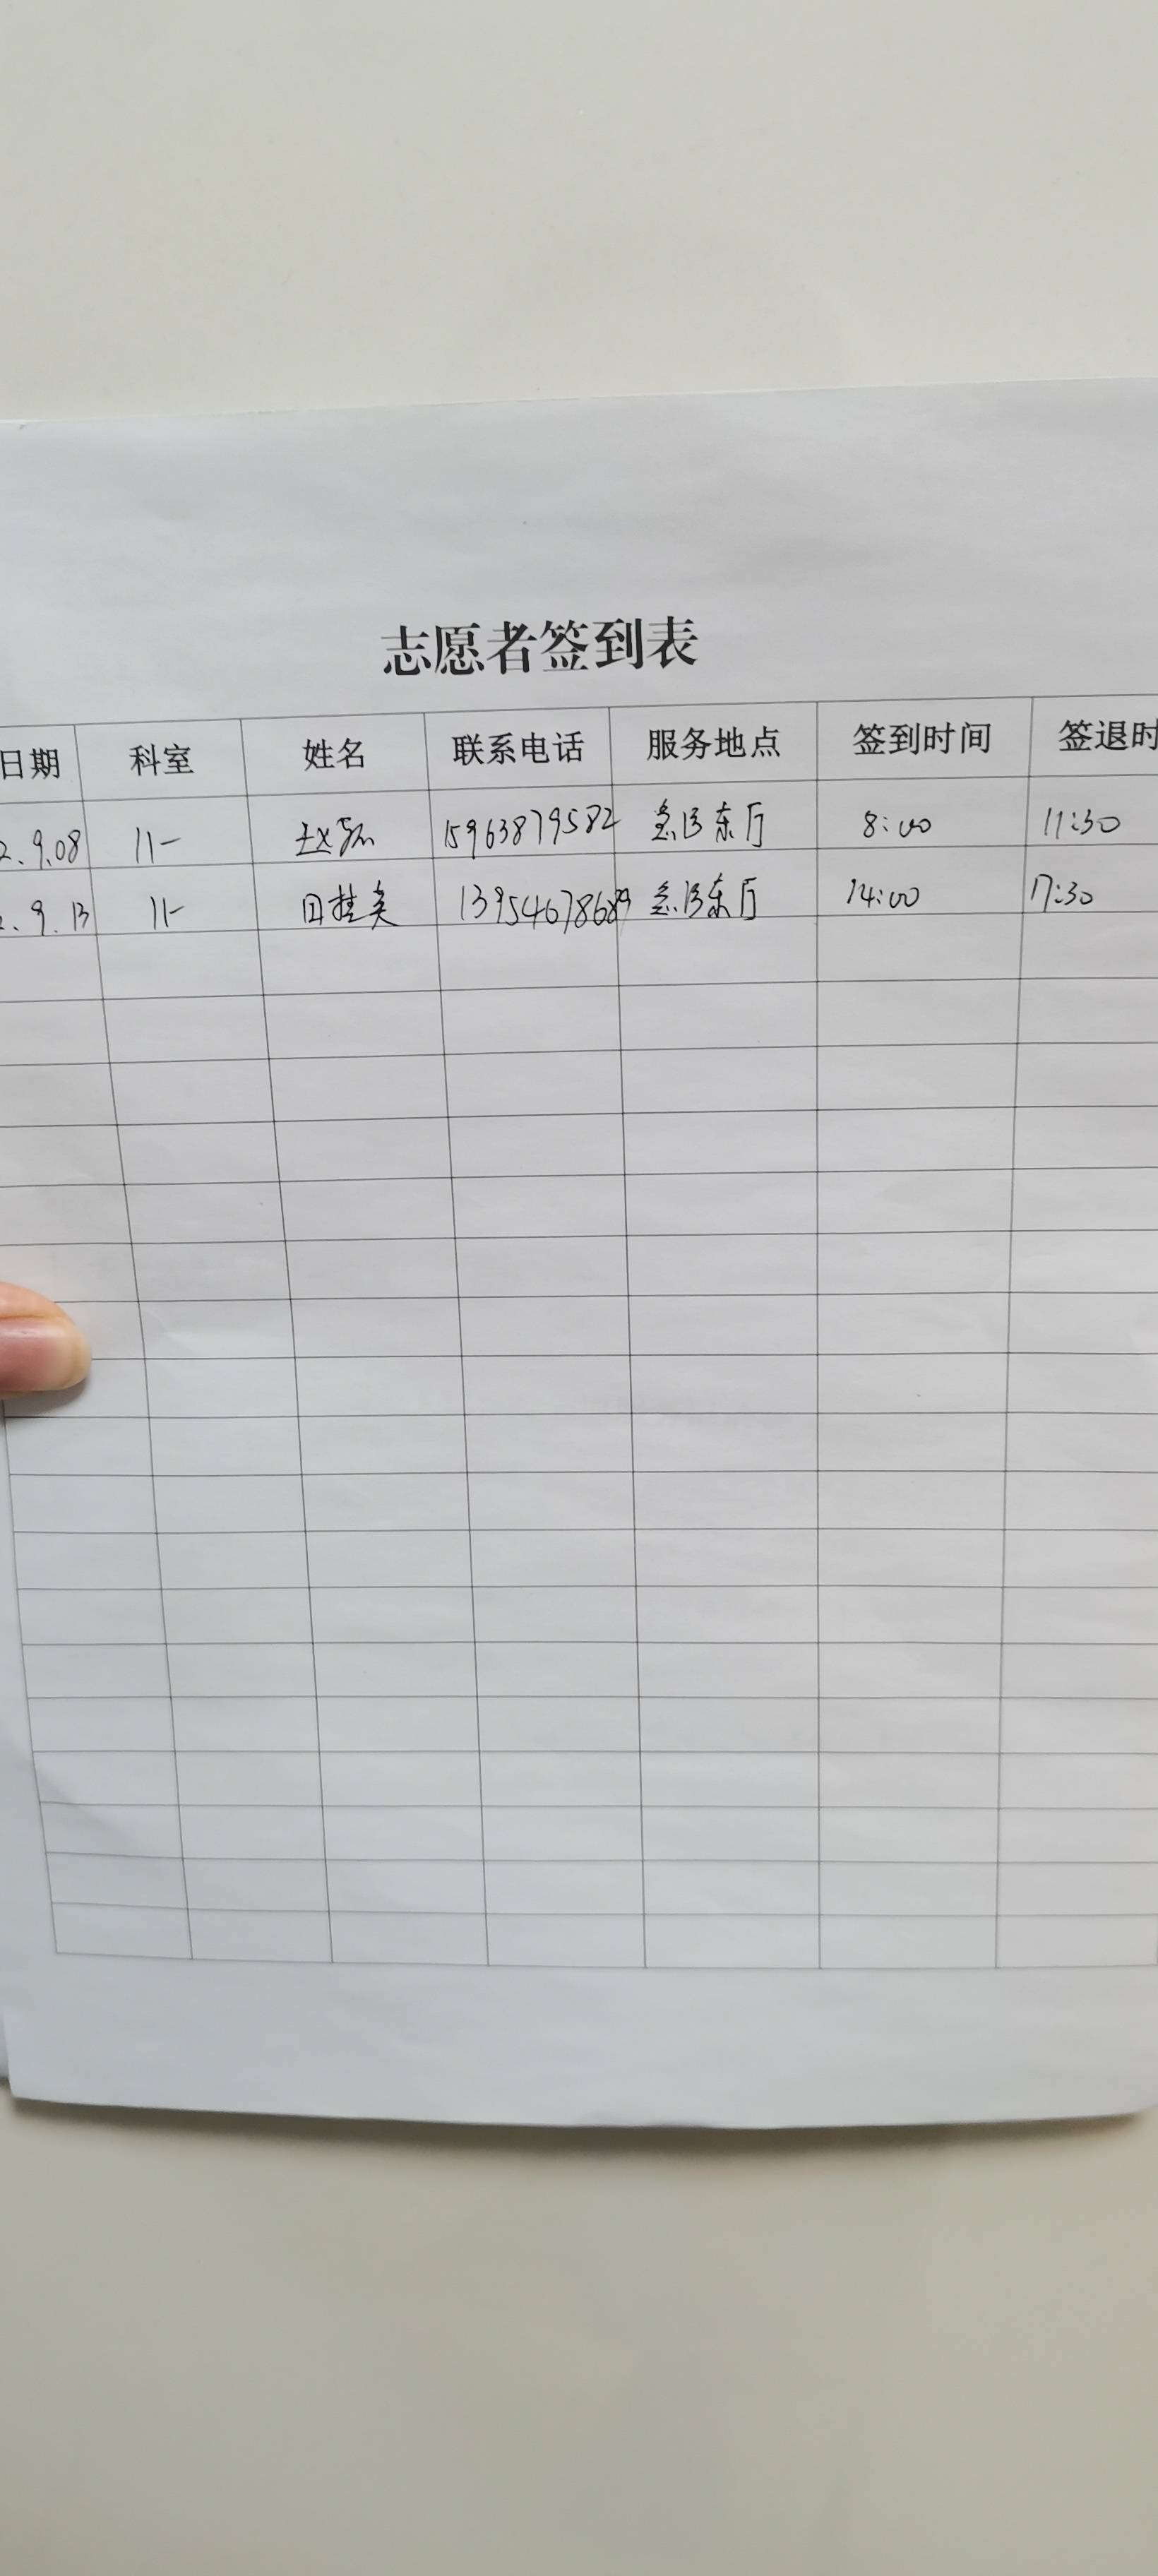 志愿者签到表
日期 科室 姓名 联系电话 服务地点 签到时间 签退时
2.9.08 11一 15963879582 急诊东厅 8:00 11:30
2.9.13 11一 田桂美 急诊东厅 14:00 17:30